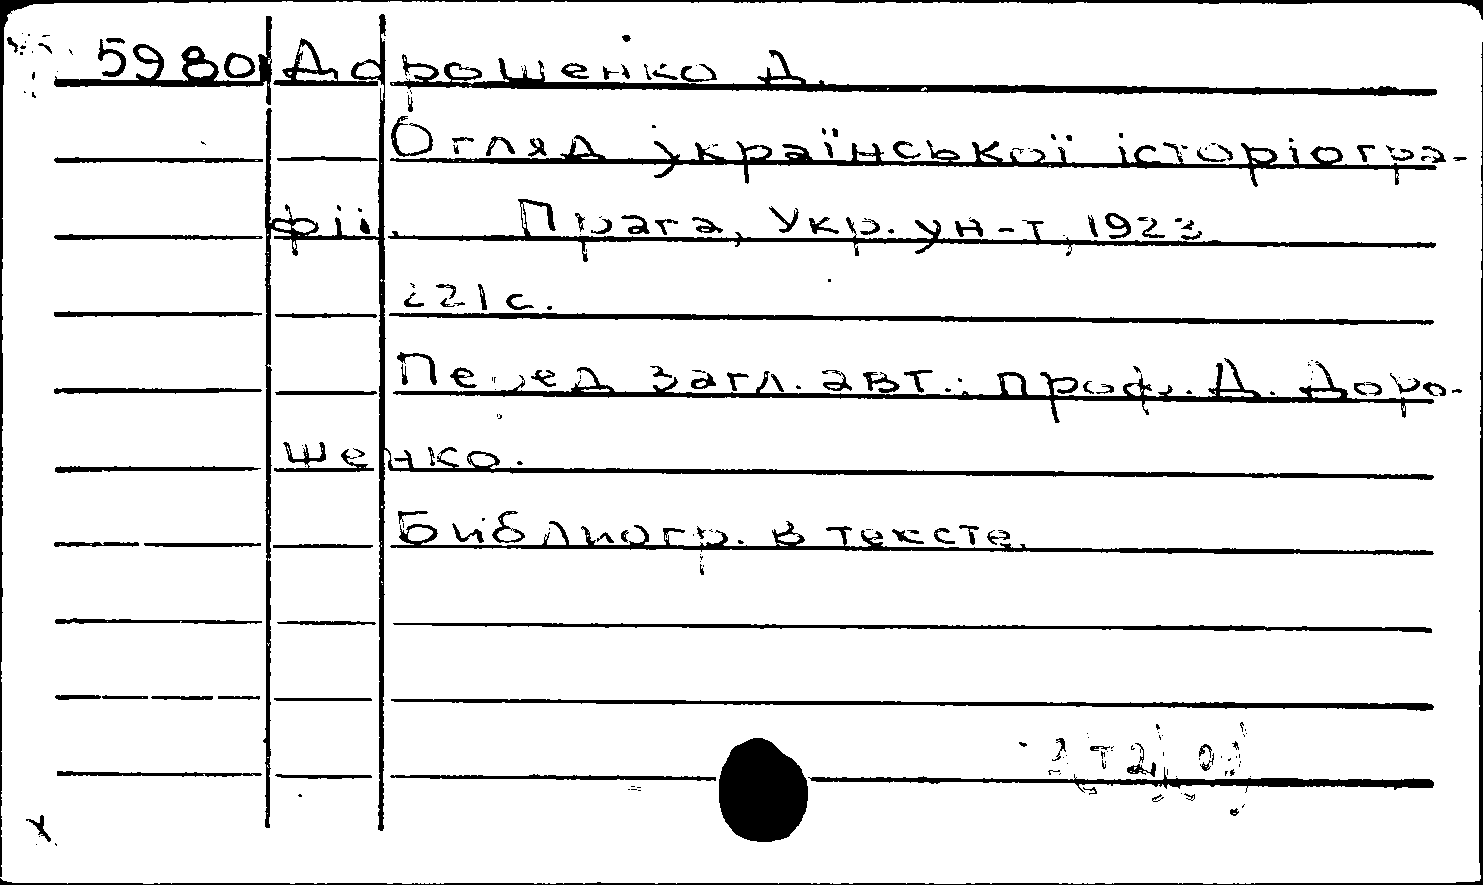 5980 Дорошенко Д.
Огляд української історіогра-
фіі. Прага, Укр. ун-т, 1923
221 с.
Перед загл. авт.: проф. Д. Доро-
шенко.
Библиогр. в тексте.